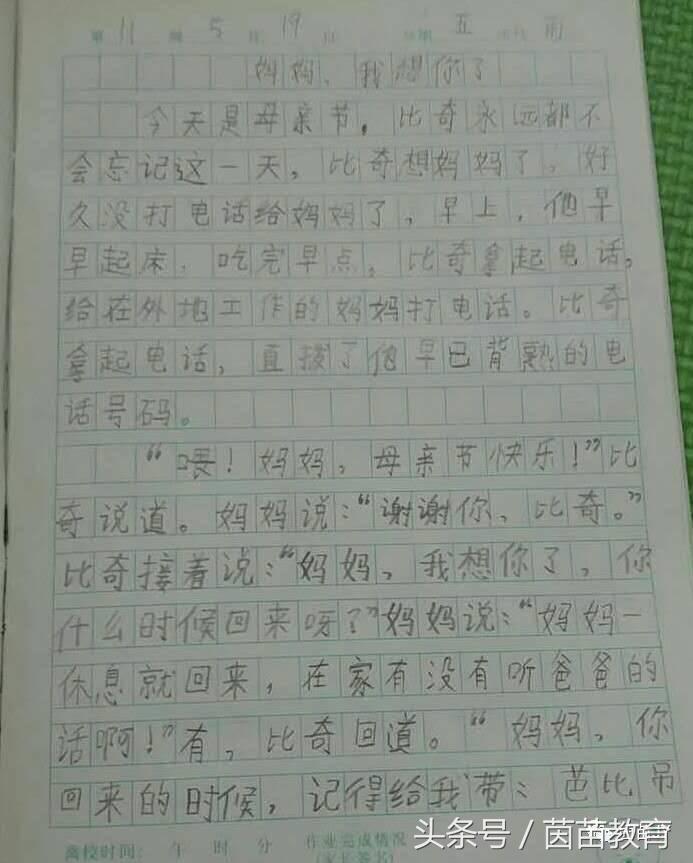 第11周5月19日 星期五 雨
妈妈、我想你了
今天是母亲节，比奇永远都不
会忘记这一天，比奇想妈妈了，好
久没打电话给妈妈了，早上，他早
早起床，吃完早点，比奇拿起电话，
给在外地工作的妈妈打电话。比奇
拿起电话，直拨了他早已背熟的电
话号码。
“喂！妈妈，母亲节快乐！”比
奇说道。妈妈说：“谢谢你、比奇。”
比奇接着说：“妈妈，我想你了，你
什么时候回来呀？”妈妈说：“妈妈一
休息就回来，在家有没有听爸爸的
话啊！”有，比奇回道。“妈妈，你
回来的时候，记得给我带：芭比吊
离校时间： 午 时 分 作业完成情况
(家长签名)
头条号 / 茵苗教育